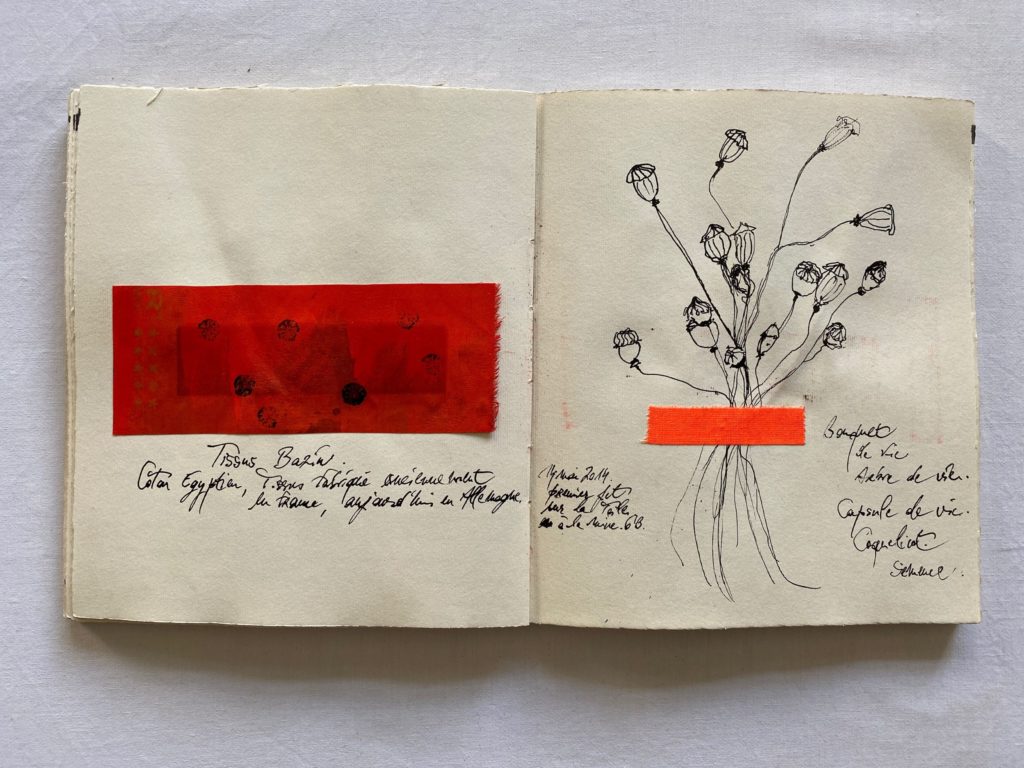 Tissus Bazin.
Coton Egyptien, Tissus Fabriqué anciennement
en France, aujourd'hui en Allemagne.
14 mai 2014.
premier jet
sur la Toile
à la mine. 6B.
Bouquet
de vie
Arbre de vie.
Capsule de vie.
Coquelicot.